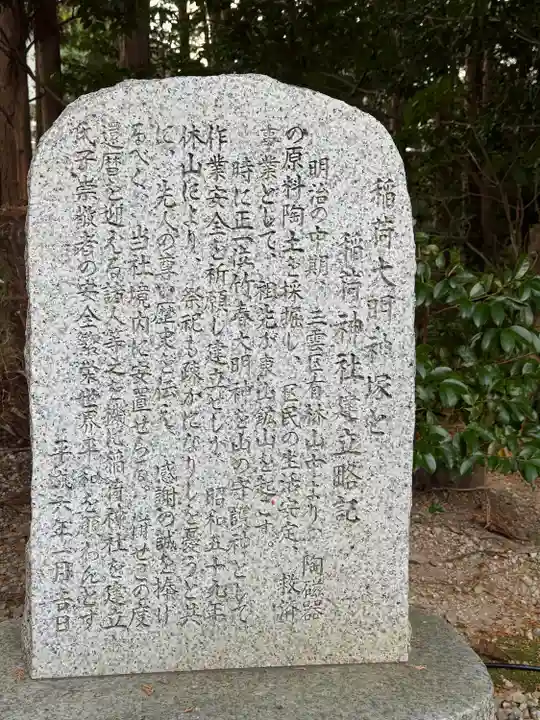 稲荷大明神塚と
稲荷神社建立略記
明治の中期、三雲区有林山中より、陶磁器
の原料陶土を採掘し、区民の生活安定、救済
事業として、祖先が東山鉱山を起こす。
時に正一位竹春大明神を山の守護神として
作業安全を祈願し建立としが、昭和五十九年
休山により、祭祀も疎かになりしを憂うと共
に、先人の尊い歴史を伝え、感謝の誠を捧げ
るべく、当社境内に安置せらる。併せこの度
還暦を迎える諸人等之を機に稲荷神社を建立
氏子崇敬者の安全繁栄世界平和を願わんとす
平成六年一月吉日